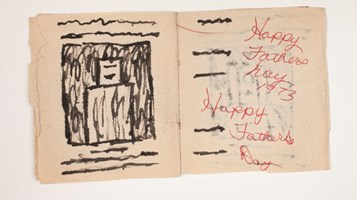 Happy
Fathers
Day
1973
Happy
Fathers
Day